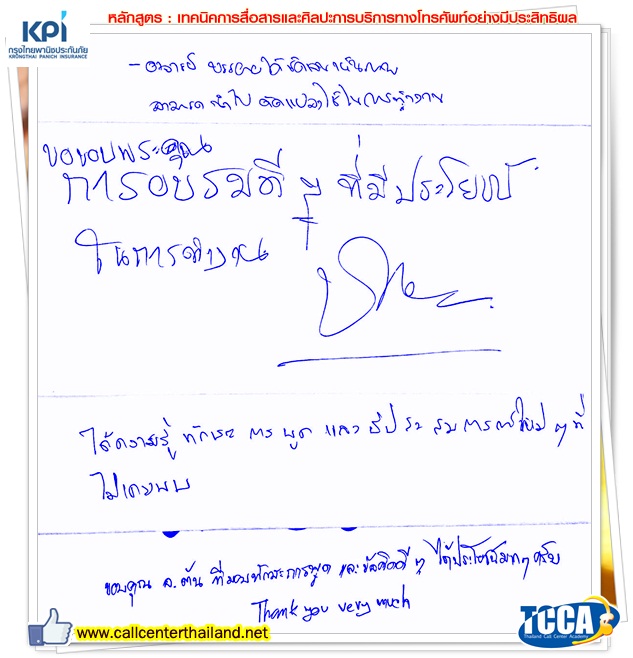 KPI
กรุงไทยพานิชประกันภัย
KRUNGTHAI PANICH INSURANCE
หลักสูตร : เทคนิคการสื่อสารและศิลปะการบริการทางโทรศัพท์อย่างมีประสิทธิผล
- อาจารย์ บรรยายได้ชัดเจน
สามารถ นำไป ดัดแปลงใช้ในการทำงาน
ขอขอบพระคุณ
การอบรมดี ๆ ที่มีประโยชน์
ในการทำงาน
ได้ความรู้ ทักษะ การ พูด และ มีประสบการณ์ใหม่ ๆ ที่
ไม่เคยพบ
ขอบคุณ อ.ต้น ที่มอบทักษะการพูด และข้อคิดดี ๆ ได้ประโยชน์มากๆ ครับ
Thank you very much
www.callcenterthailand.net
TCCA
Thailand Call Center Academy